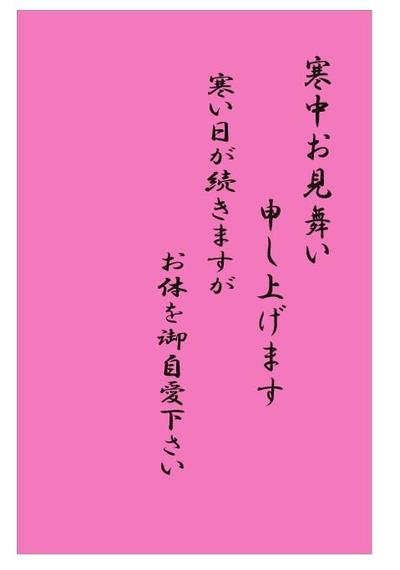 寒中お見舞い
申し上げます
寒い日が続きますが
お体を御自愛下さい